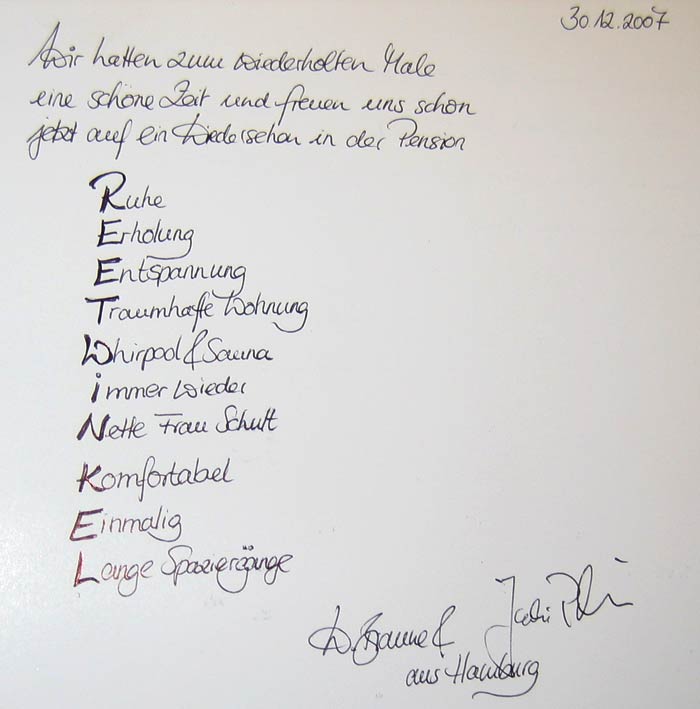 30.12.2007
Wir hatten zum wiederholten Male
eine schöne Zeit und freuen uns schon
jetzt auf ein Wiedersehen in der Pension
Ruhe
Erholung
Entspannung
Traumhafte Wohnung
Whirpool & Sauna
immer wieder
Nette Frau Schutt
Komfortabel
Einmalig
Lange Spaziergänge
&
aus Hamburg